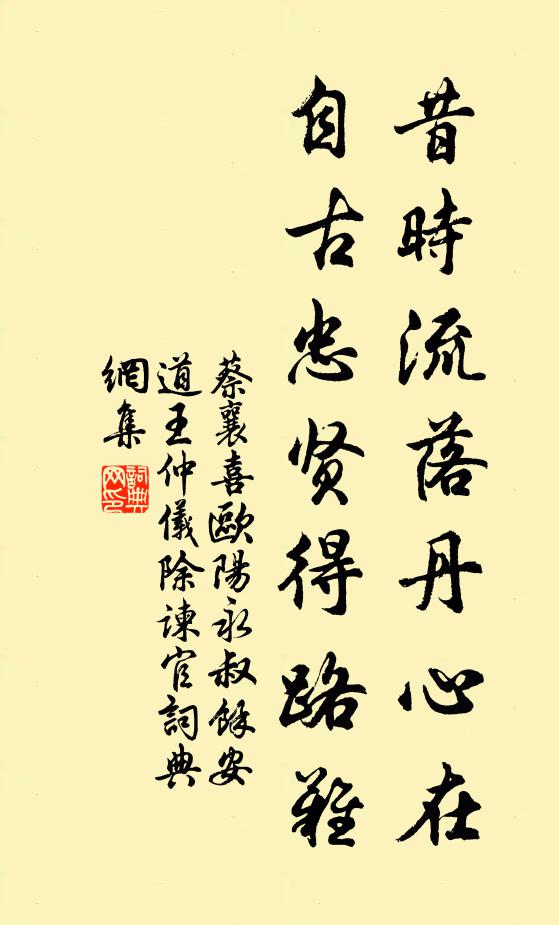 昔時流落丹心在
自古忠贤得路難
蔡襄喜歐陽永叔餘安
道王仲儀除諫官詞典
網集
詞典網印